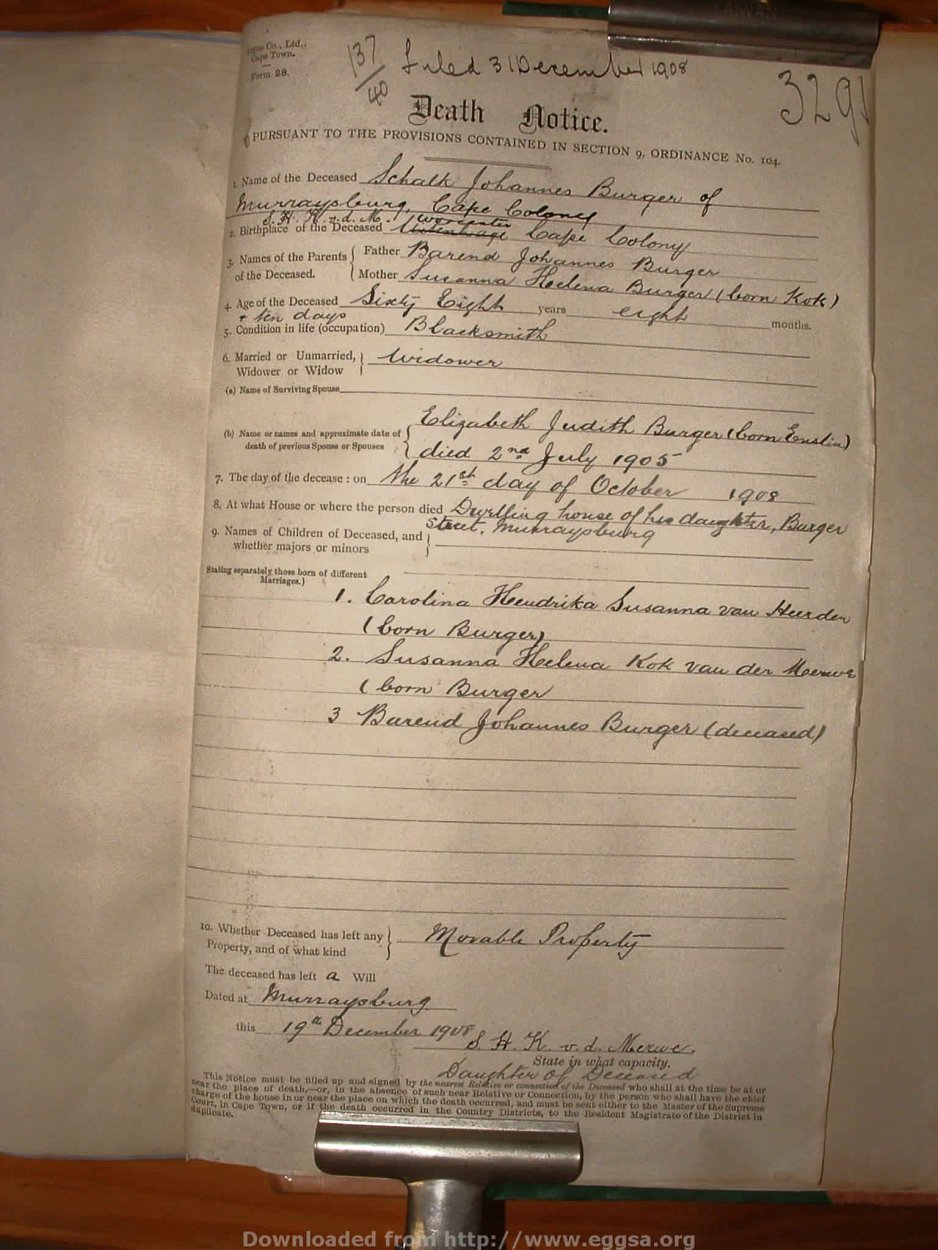 Argus Co., Ltd.,
Cape Town.
Form 28.
137/40
Filed 31 December 1908
Death Notice.
PURSUANT TO THE PROVISIONS CONTAINED IN SECTION 9, ORDINANCE No. 104.
1. Name of the Deceased Schalk Johannes Burger of
Murraysburg, Cape Colony
S. H. K. v. d. M. Worcester
2. Birthplace of the Deceased Uitenhage Cape Colony
3. Names of the Parents of the Deceased. Father Barend Johannes Burger
Mother Susanna Helena Burger (born Kok)
4. Age of the Deceased Sixty Eight years eight months.
+ ten days
5. Condition in life (occupation) Blacksmith
6. Married or Unmarried, Widower or Widow Widower
(a) Name of Surviving Spouse
(b) Name or names and approximate date of death of previous Spouse or Spouses Elizabeth Judith Burger (born Enslin)
died 2nd July 1905
7. The day of the decease : on the 21st day of October 1908
8. At what House or where the person died Dwelling house of his daughter, Burger
Street, Murraysburg
9. Names of Children of Deceased, and whether majors or minors
Stating separately those born of different Marriages.)
1. Carolina Hendrika Susanna van Heerden
(born Burger)
2. Susanna Helena Kok van der Merwe
(born Burger
3 Barend Johannes Burger (deceased)
10. Whether Deceased has left any Property, and of what kind Movable Property
The deceased has left a Will
Dated at Murraysburg
this 19th December 1908
S. H. K. v. d. Merwe.
State in what capacity.
Daughter of Deceased
This Notice must be filled up and signed by the nearest Relative or connection of the Deceased who shall at the time be at or
near the place of death,—or, in the absence of such near Relative or Connection, by the person who shall have the chief
charge of the house in or near the place on which the death occurred, and must be sent either to the Master of the Supreme
Court, in Cape Town, or if the death occurred in the Country Districts, to the Resident Magistrate of the District in
duplicate.
Downloaded from http://www.eggsa.org